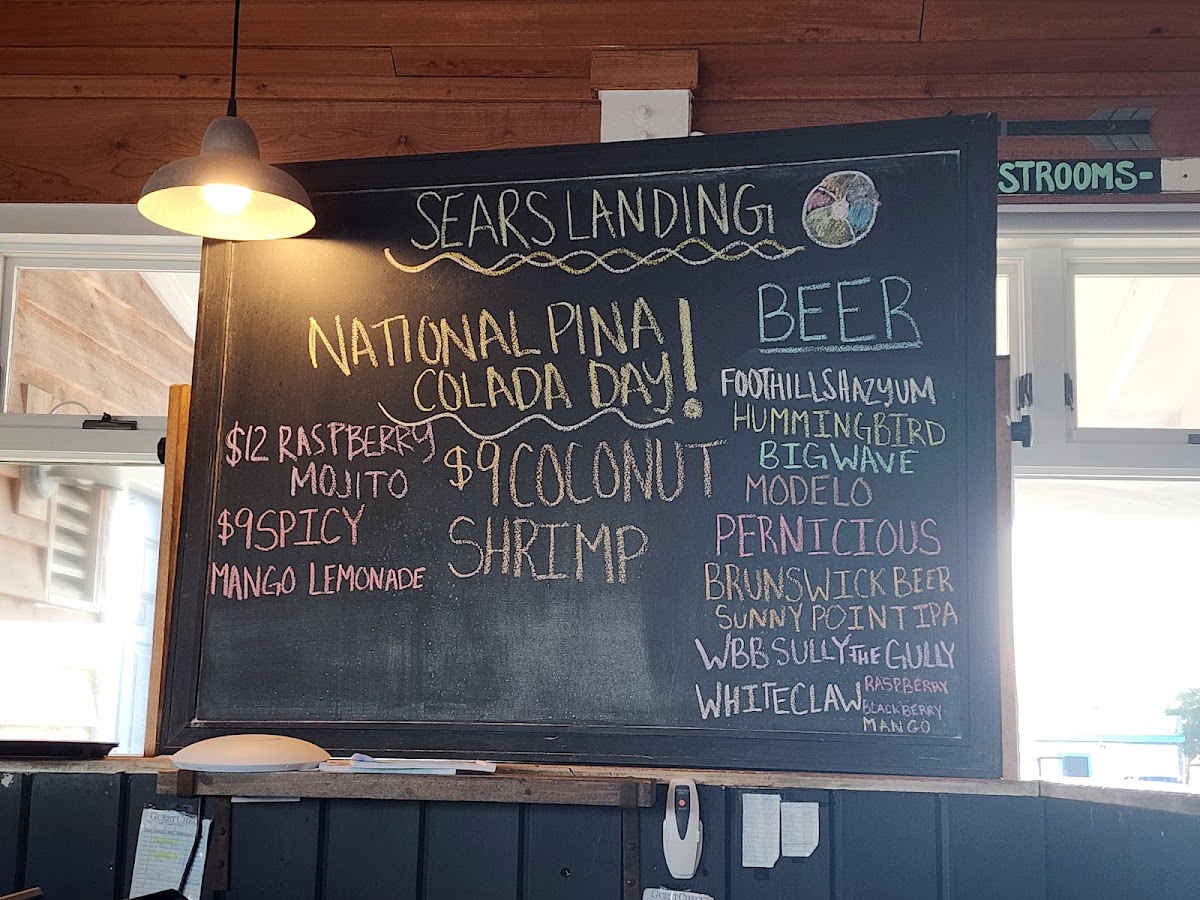 SEARS LANDING
STROOMS-
NATIONAL PINA
COLADA DAY!
$12 RASPBERRY
MOJITO
$9 SPICY
MANGO LEMONADE
$9 COCONUT
SHRIMP
BEER
FOOTHILLS HAZYUM
HUMMINGBIRD
BIG WAVE
MODELO
PERNICIOUS
BRUNSWICK BEER
SUNNY POINT IPA
WBB SULLY THE GULLY
WHITECLAW RASPBERRY
BLACKBERRY
MANGO